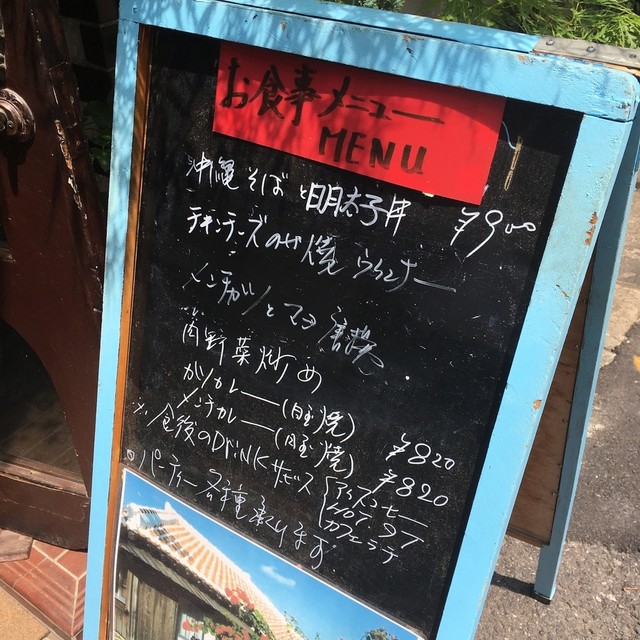 お食事メニュー
MENU
沖縄そばと明太子丼 ¥900
チキンチーズのせ焼
メンチカツとマヨ
筍野菜炒め
カツカレー(目玉焼) ¥820
メンチカレー(目玉焼) ¥820
※食後のDRiNKサービス
アイスコーヒー
HOT 〃
カフェラテ
○パーティー各種承ります